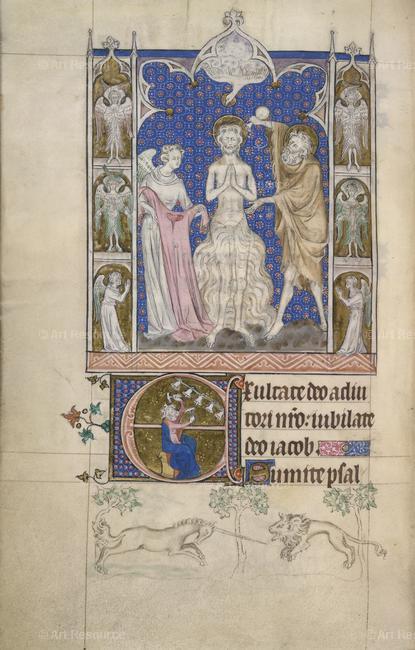 © Art Resource
Exultate deo adiu
tori nr̄o: iubilate
deo iacob.
Sumite psal
© Art Resource